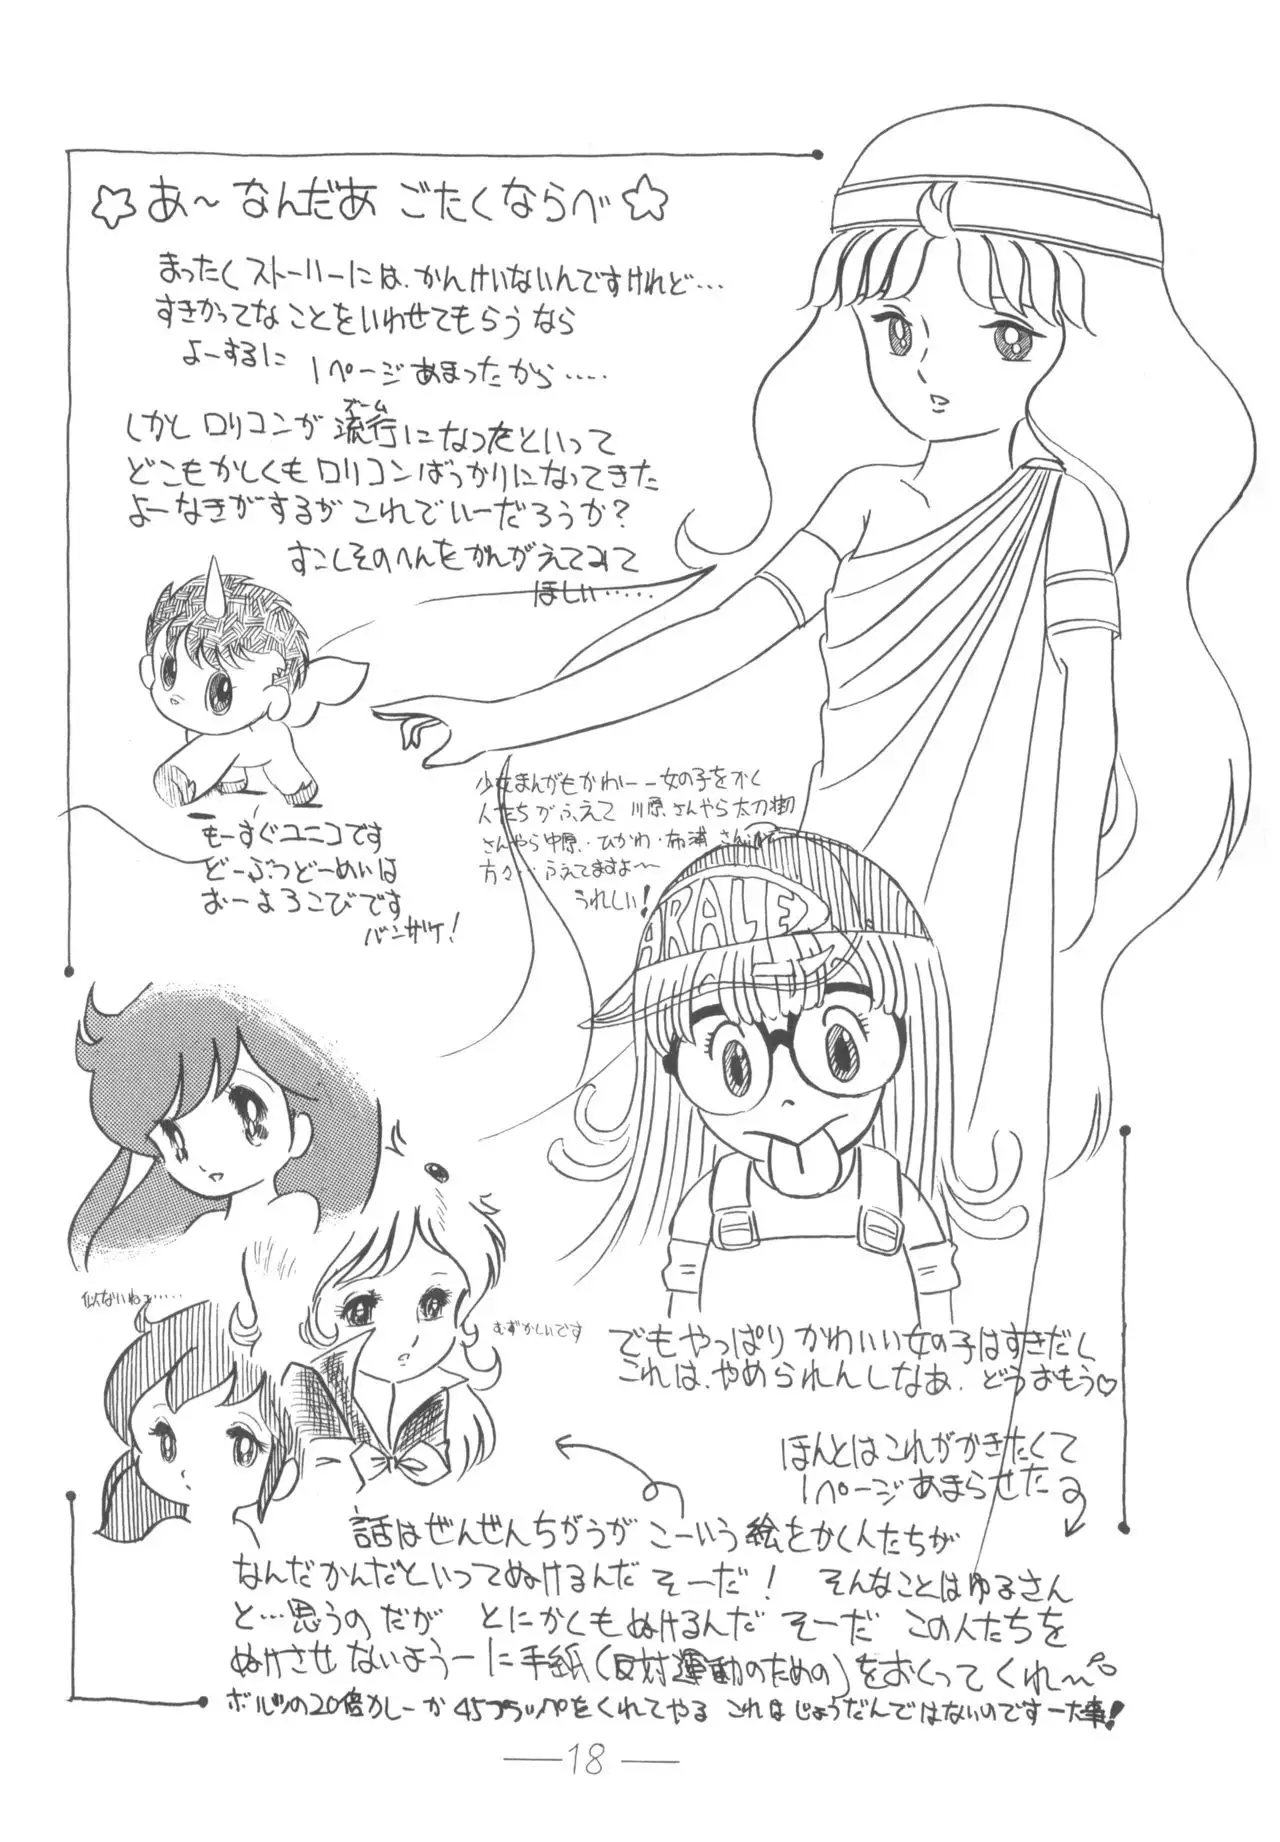 ☆あ〜なんだあ ごたくならべ☆
まったくストーリーには、かんけいないんですけれど…
すきかってなことをいわせてもらうなら
よーするに 1ページあまったから……
ブーム
しかしロリコンが流行になったといって
どこもかしくもロリコンばっかりになってきた
よーなきがするがこれでいーだろうか?
すこしそのへんをかんがえてみて
ほしい……
もーすぐユニコです
どーぶつどーめいは
おーよろこびです
バンザケ!
少女まんがもかわいーー女の子をかく
人たちがふえて 川原さんやら太刀掛
さんやら中原・ひかわ・布浦さん
方々…ふえてますよ〜
うれしい!
ARALE
似ないねェ……
むずかしいです
でもやっぱりかわいい女の子はすきだし
これは、やめられんしなあ、どうおもう♡
ほんとはこれがかきたくて
1ページあまらせた
話はぜんぜんちがうが こーいう絵をかく人たちが
なんだかんだといってぬけるんだ そーだ! そんなことはゆるさん
と…思うのだが とにかくもぬけるんだ そーだ この人たちを
ぬけさせないよう一に手紙(反対運動のための)をおくってくれ〜
ボルツの20倍カレーか45プラッペをくれてやる これはじょうだんではないのです一大事!
18